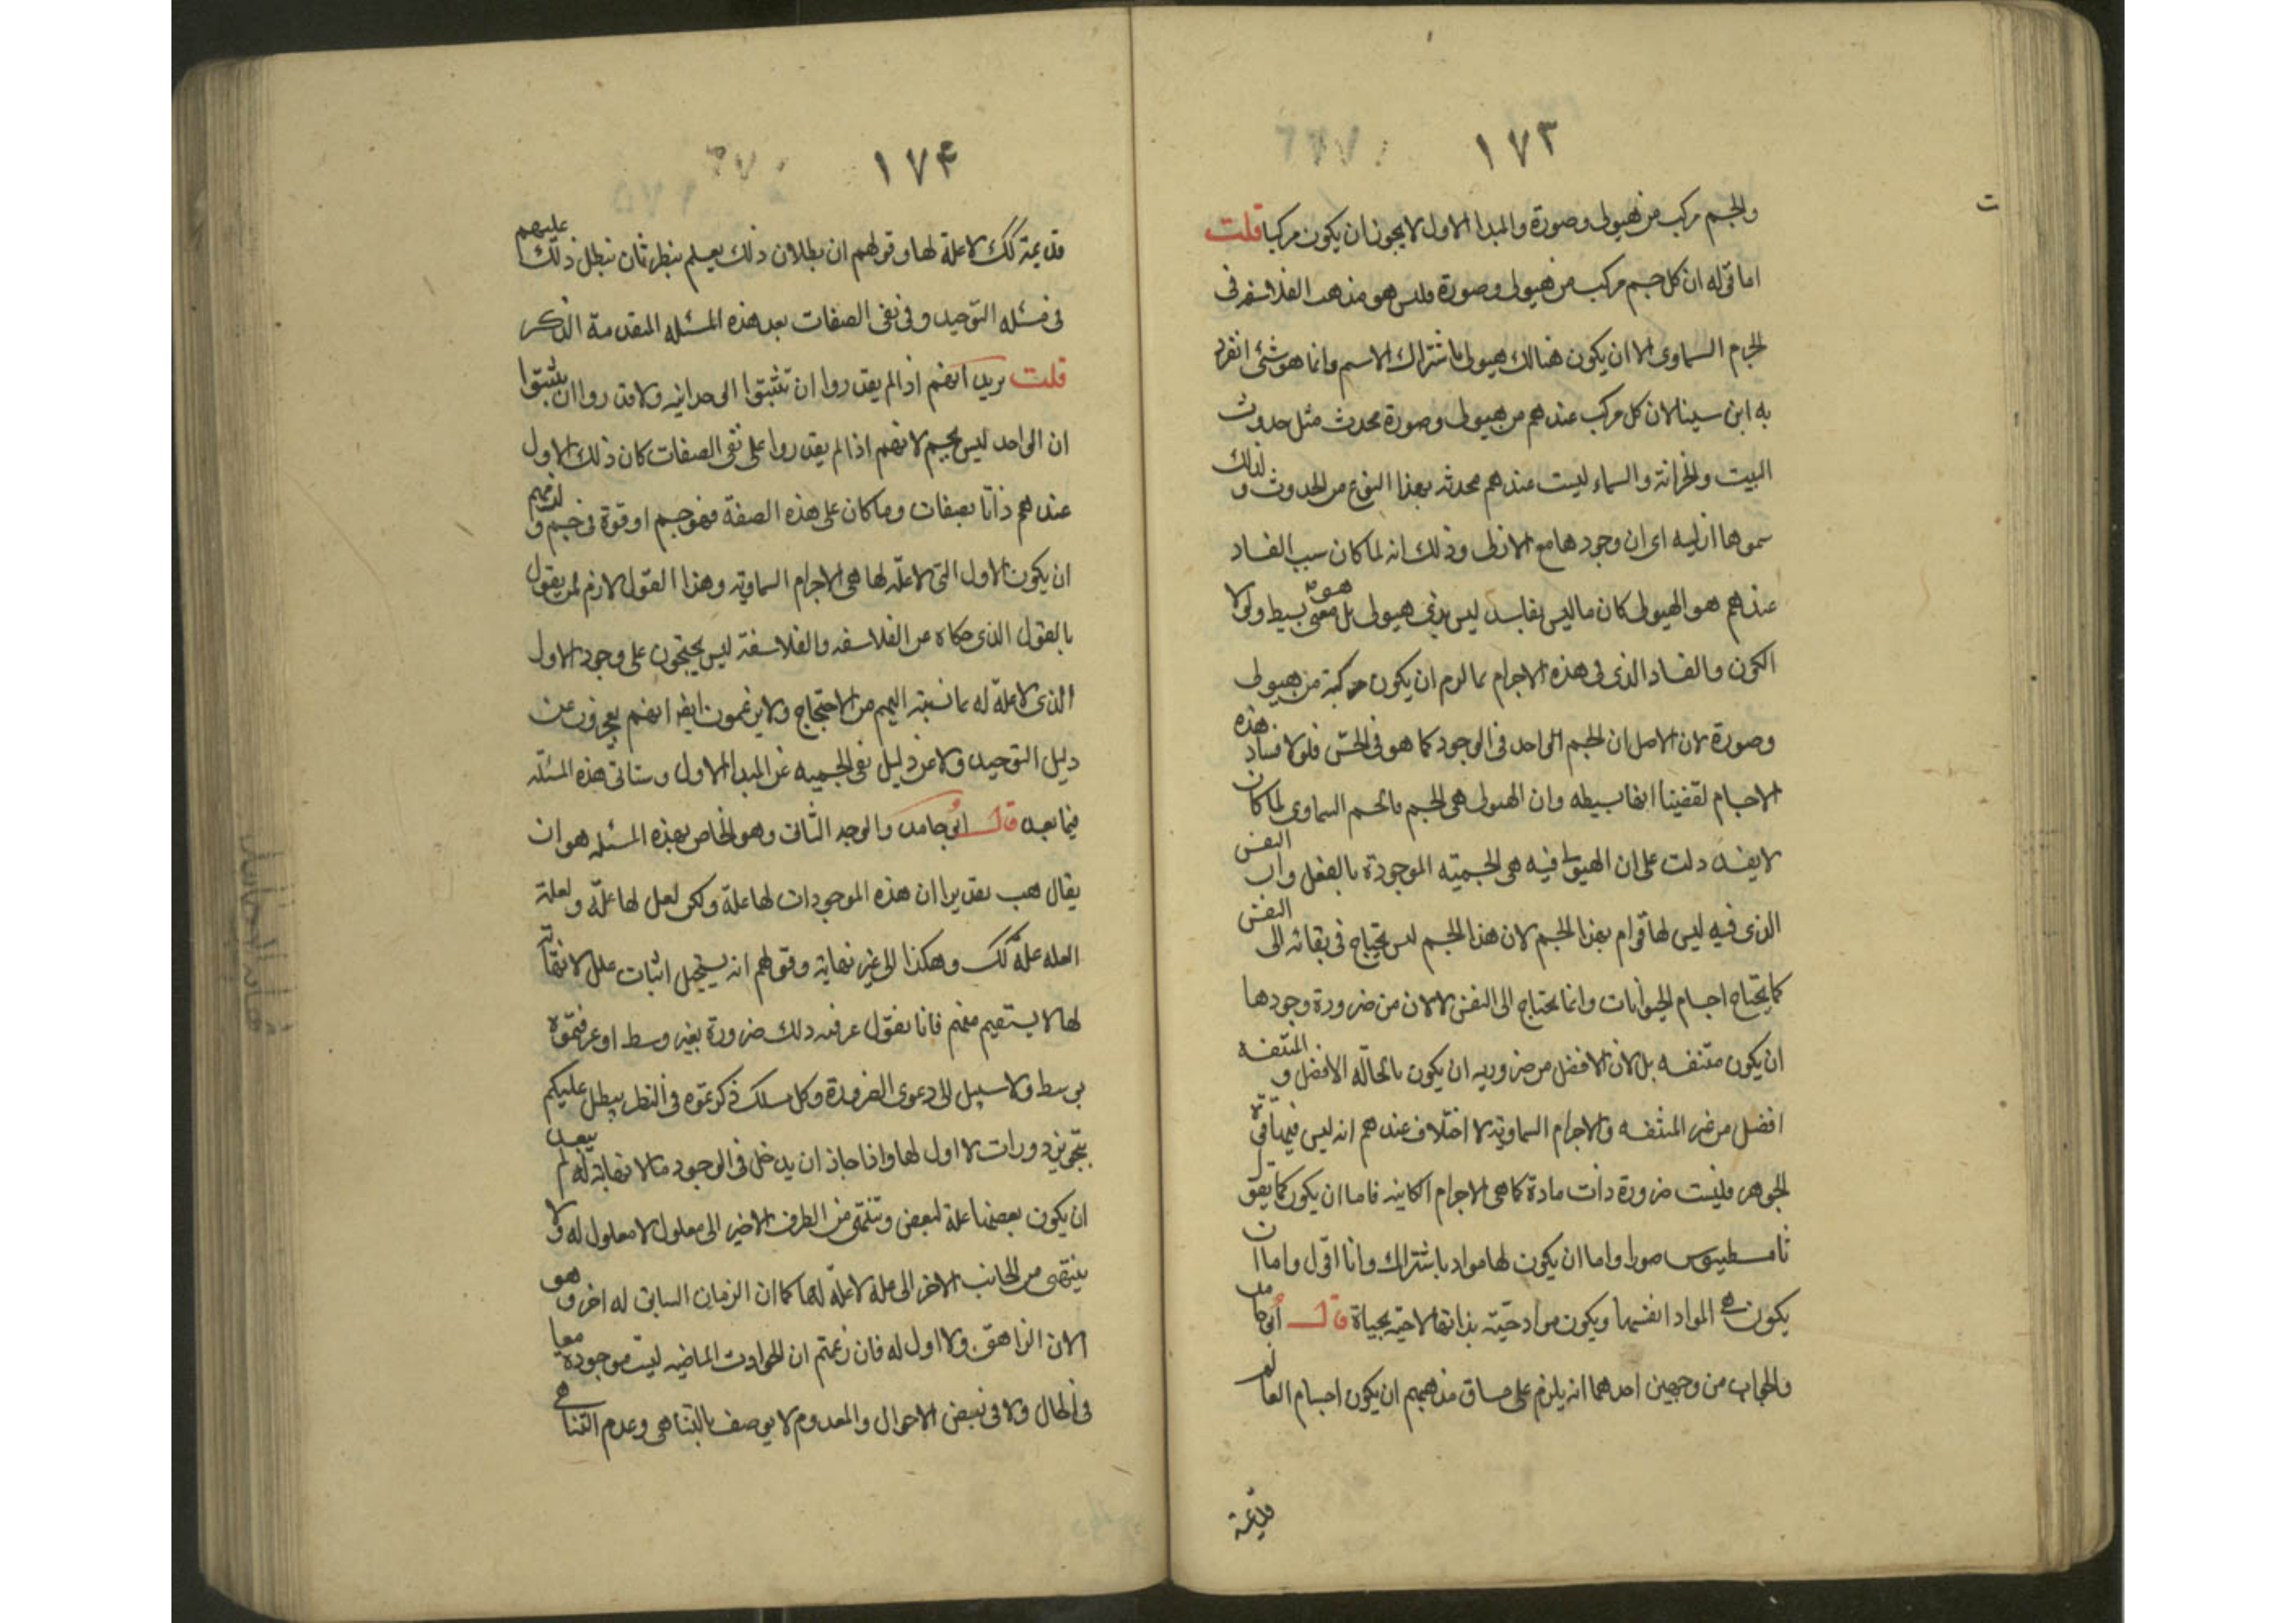 ١٧٣
والجسم مركب من هيولى وصورة والمبدا الاول لا يجوز ان يكون مركبا قلت
اما قوله ان كل جسم مركب من هيولى وصورة فليس هو مذهب الفلاسفه فى
الجرم السماوى الا ان يكون هنالك هيولى باشتراك الاسم وانما هو شئ انفرد
به ابن سينا لان كل مركب عندهم من هيولى وصورة محدث مثل حدوث
البيت والخزانة والسماء ليست عندهم محدثه بهذا النوع من الحدوث ولذلك
سموها ازليه اى ان وجودها مع الازلى وذلك انه لما كان سبب الفساد
عندهم هو الهيولى كان ما ليس بفاسد ليس بذى هيولى بل هو معنى بسيط ولولا
الكون والفساد الذى فى هذه الاجرام لما لزم ان يكون مركبة من هيولى
وصورة لان الاصل ان الجسم الواحد فى الوجود كما هو فى الحس فلولا فساد هذه
الاجسام لقضينا انها بسيطه وان الهيولى هى الجسم فالجسم السماوى لما كان
لا يفسد دلت على ان الهيولى فيه هى الجسمية الموجودة بالفعل وان النفس
الذى فيه ليس لها قوام بهذا الجسم لان هذا الجسم ليس يحتاج فى بقائه الى النفس
كما يحتاج اجسام الحيوانات وانما يحتاج الى النفس لا لان من ضرورة وجودها
ان يكون متنفسه بل لان الافضل من ضروريه ان يكون بالحالة الافضل والمتنفسه
افضل من غير المتنفسه والاجرام السماوية لا اختلاف عندهم انه ليس فيها قوة
الجوهر فليست ضرورة ذات مادة كما هى الاجرام الكاينه فاما ان يكون كما يقول
ثامسطيوس صورا واما ان يكون لها مواد باشتراك وانا اقول واما ان
يكون هى المواد انفسها ويكون مواد حية بذاتها لا حية بحياة قال ابو حامد
والجواب من وجهين احدهما انه يلزم على مساق مذهبهم ان يكون اجسام العالم
قديمة
١٧٤
قديمة كك لا علة لها وقولهم ان بطلان ذلك يعلم بنظر ثان نبطل ذلك عليهم
فى مسئله التوحيد وفى نفى الصفات بعد هذه المسئله المتقدمة الذكر
قلت يريد انهم اذا لم يقدروا ان تثبتوا الوحدانيه ولا قدروا ان يثبتوا
ان الواحد ليس بجسم لانهم اذا لم يقدروا على نفى الصفات كان ذلك الاول
عندهم ذاتا بصفات وما كان على هذه الصفة فهو جسم او قوة فى جسم ولزمهم
ان يكون الاول التى لا علة لها هى الاجرام السماوية وهذا القول لازم لمن يقول
بالقول الذى حكاه عن الفلاسفه والفلاسفة ليس يحتجون على وجود الاول
الذى لا علة له بما نسبه اليهم من الاحتجاج ولا يزعمون ايضا انهم يعجزون عن
دليل التوحيد ولا عن دليل نفى الجسميه عن المبدا الاول وستاتى هذه المسئله
فيما بعد قال ابو حامد والوجه الثانى وهو الخاص بهذه المسئله هو ان
يقال هب تقديرا ان هذه الموجودات لها علة ولكن لعل لها علة ولعلة
العله علة كك وهكذا الى غير نهاية وقولهم انه يستحيل اثبات علل لا نهاية
لها لا يستقيم منهم فانا نقول عرفتم ذلك ضرورة بغير وسط او عرفتموه
بوسط ولا سبيل الى دعوى الضرورة وكل مسلك ذكرتموه فى النظر يبطل عليكم
بتجويز دورات لا اول لها واذا جاز ان يدخل فى الوجود ما لا نهاية له لم يبعد
ان يكون بعضها علة لبعض وتنتهى من الطرف الاخير الى معلول لا معلول له ولا
ينتهى من الجانب الاخر الى علة لا علة لها كما ان الزمان السابق له اخر وهو
الان الراهن ولا اول له فان زعمتم ان الحوادث الماضيه ليست موجودة معا
فى الحال ولا فى بعض الاحوال والمعدوم لا يوصف بالتناهى وعدم التناهى